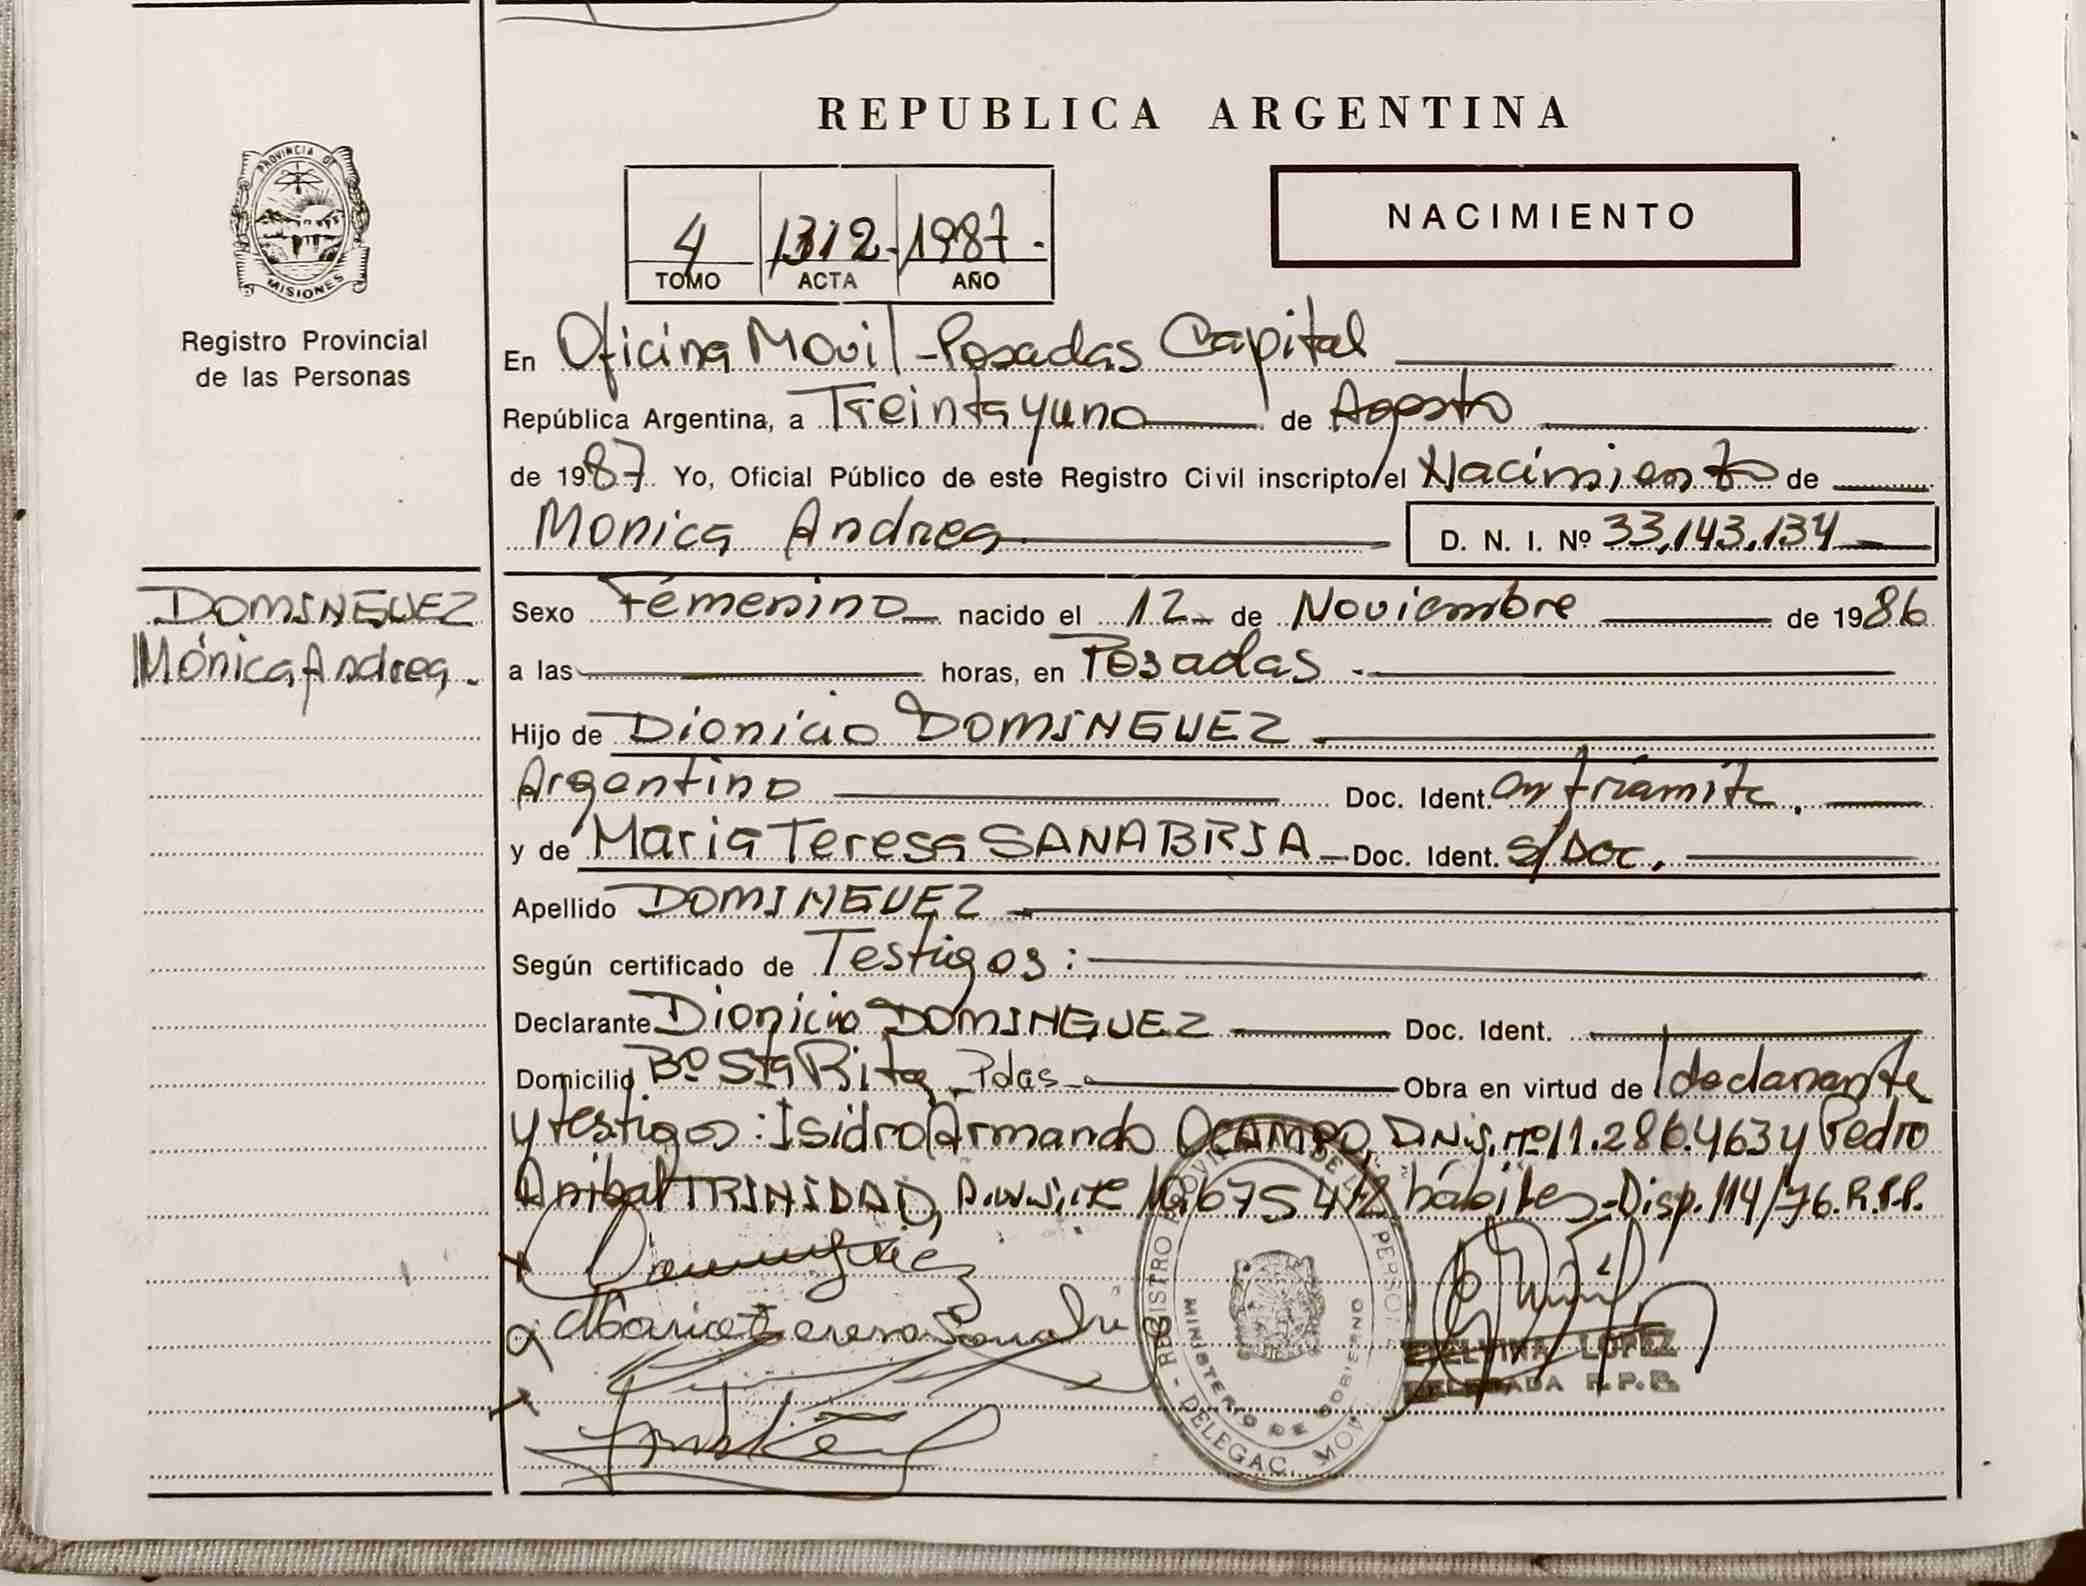 REPUBLICA ARGENTINA
PROVINCIA DE
MISIONES
Registro Provincial
de las Personas
NACIMIENTO
4 1312- 1987-
TOMO ACTA AÑO
En Oficina Movil - Posadas Capital
República Argentina, a Treinta y uno de Agosto
de 1987 Yo, Oficial Público de este Registro Civil inscripto/el Nacimiento de
Monica Andrea D. N. I. Nº 33,143.134
DOMINGUEZ
Mónica Andrea.
Sexo Femenino nacido el 12 de Noviembre de 1986
a las horas, en Posadas
Hijo de Dionicio DOMINGUEZ
Argentino Doc. Ident. en trámite.
y de Maria Teresa SANABRIA Doc. Ident. s/Doc.
Apellido DOMINGUEZ
Según certificado de Testigos:
Declarante Dionicio DOMINGUEZ Doc. Ident.
Domicilio Bº Sta Rita Pdas Obra en virtud de declarante
y testigos: Isidro Armando OCAMPO, D.N.I. nº 11.286.463 y Pedro
Anibal TRINIDAD, D.N.I. nº 10.675.412 hábiles - Disp. 114/76. R.P.P.
Maria Teresa
REGISTRO PROVIN DE L PERSON
MINISTERIO DE GOBIERNO
DELEGAC. MOV
LOPEZ
DELEGADA R.P.P.